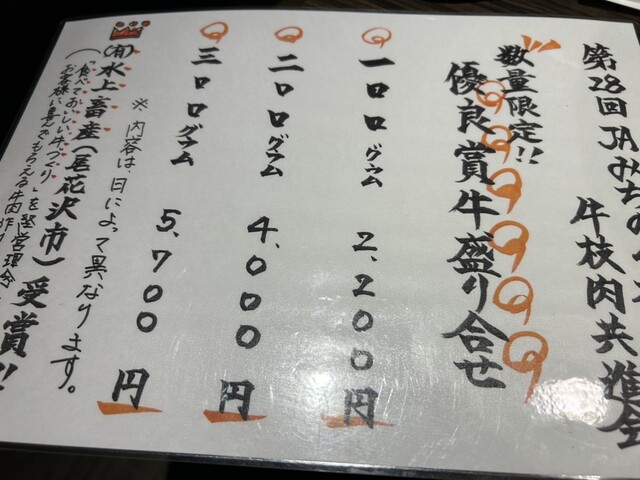 第28回JAみちの
牛枝肉共進会
数量限定!!
優良賞牛盛り合せ
一〇〇グラム 2,200円
二〇〇グラム 4,000円
三〇〇グラム 5,700円
※内容は、日によって異なります。
(有)水上畜産(尾花沢市)受賞!!
「食べておいしい牛づくり」を経営理念
お客様に喜んでもらえる牛肉作り